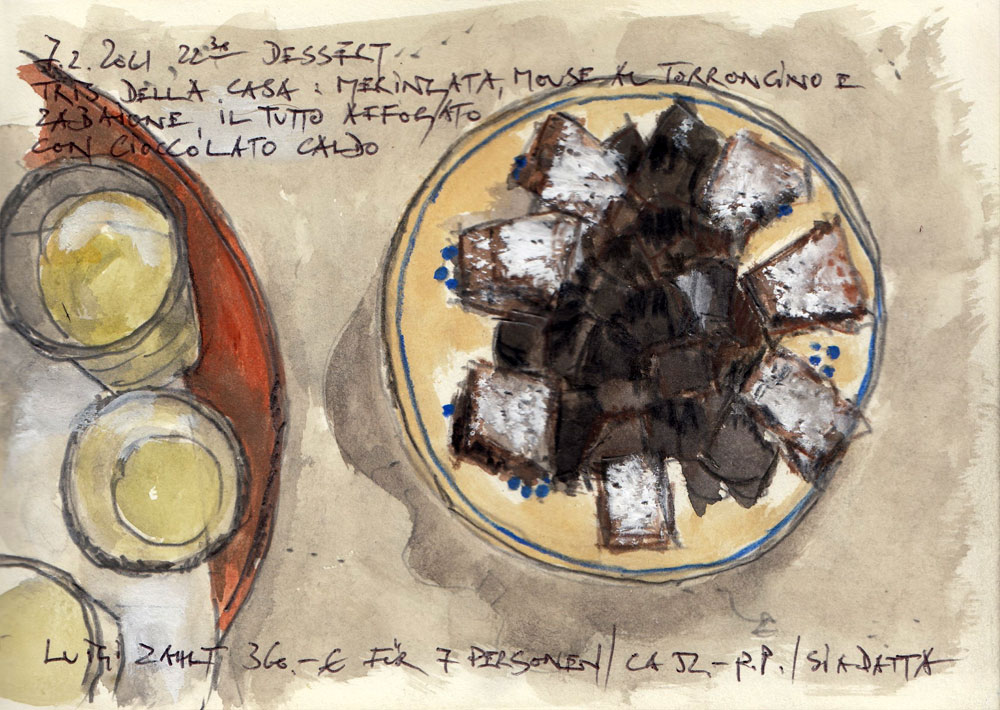 7.2.2021 22³⁰ DESSERT
TRIS DELLA CASA: MERINZATA, MOUSE AL TORRONCINO E
ZABAIONE, IL TUTTO AFFOGATO
CON CIOCCOLATO CALDO
LUIGI ZAHLT 360.-€ FÜR 7 PERSONEN/ CA 52.- P.P./ SI ADATTA